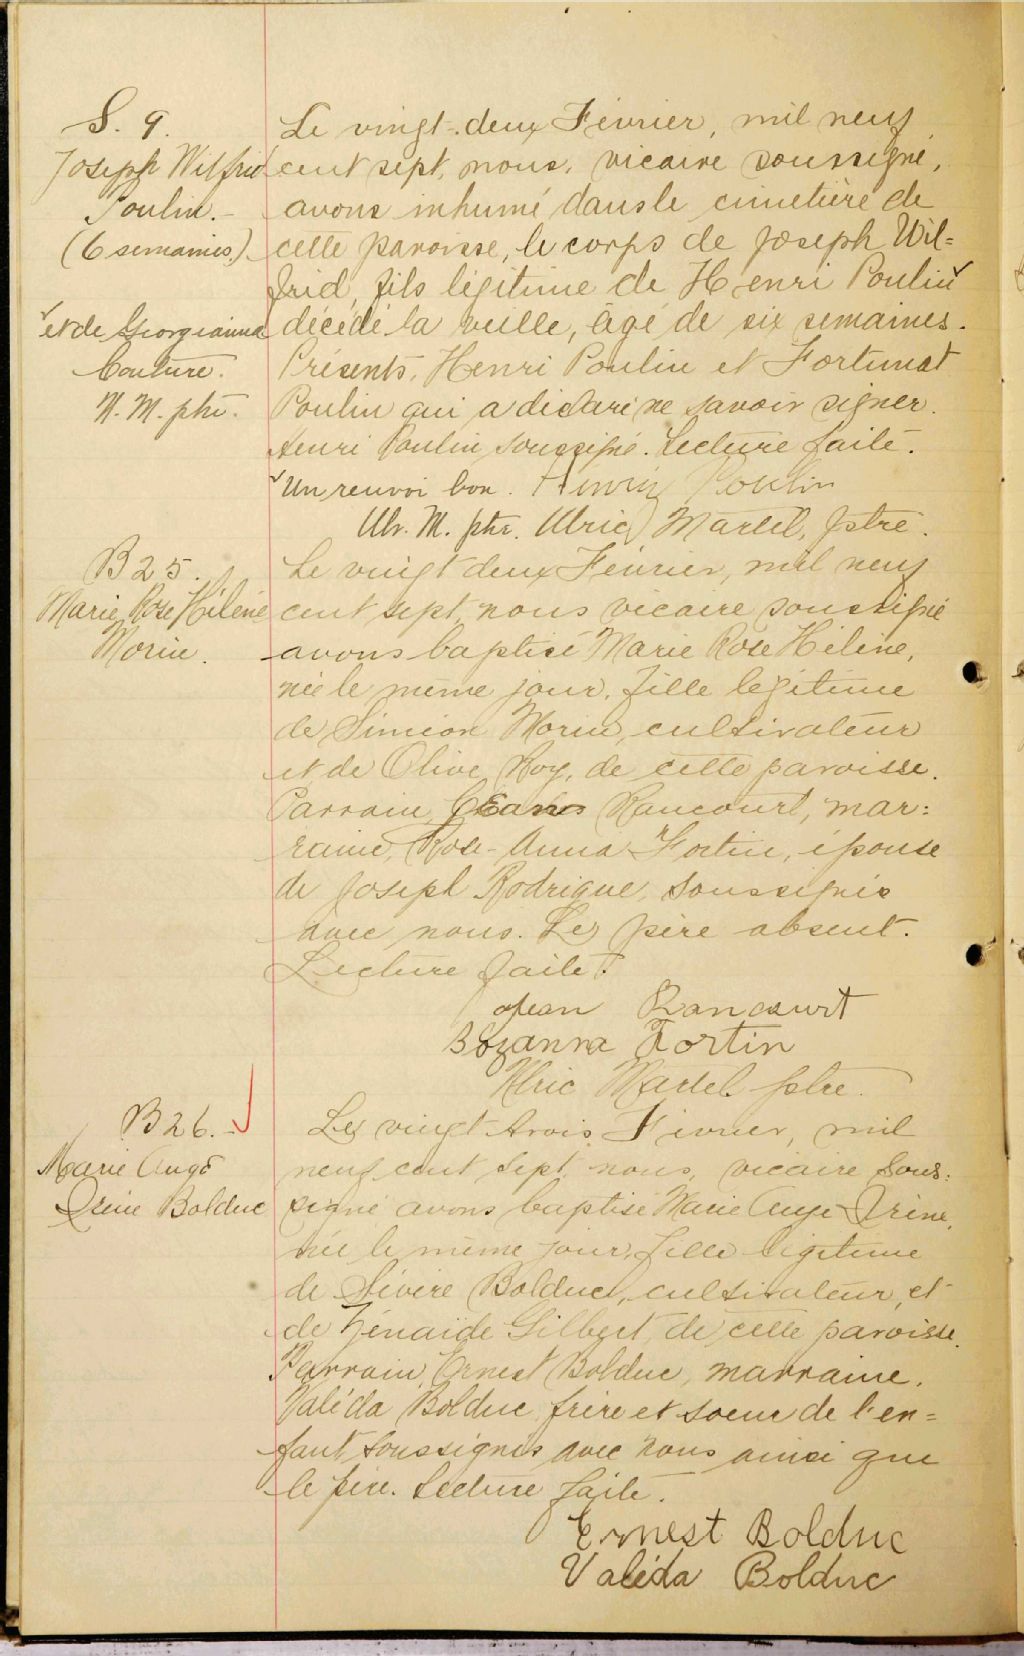 S. 9.
Joseph Wilfrid
Poulin.-
(6 semaines.)
√et de Georgianna
Couture.
U. M. ptre.
Le vingt-deux Février, mil neuf
cent sept, nous, vicaire soussigné,
avons inhumé dans le cimetière de
cette paroisse, le corps de Joseph Wil=
frid, fils légitime de Henri Poulin√
décédé la veille, âgé de six semaines.
Présents, Henri Poulin et Fortunat
Poulin qui a déclaré ne savoir signer.
Henri Poulin soussigné. Lecture faite.
√Un renvoi bon. Henri Poulin
Ulr. M. ptr. Ulric Martel, ptre.
B 25.
Marie Rose Hélène
Morin.
Le vingt deux Février, mil neuf
cent sept, nous vicaire soussigné
avons baptisé Marie Rose Hélène,
née le même jour, fille légitime
de Siméon Morin, cultivateur
et de Olive Roy, de cette paroisse.
Parrain, Rancourt, mar=
raine, Rose-Anna Fortin, épouse
de Joseph Rodrigue, soussignés
avec nous. Le père absent.
Lecture faite.
Jean Rancourt
Rozanna Fortin
Ulric Martel ptre.
B 26.-
Marie Ange
Irène Bolduc
Le vingt trois Février, mil
neuf cent sept, nous, vicaire sous=
signé avons baptisé Marie Ange Irène,
née le même jour, fille légitime
de Sévère Bolduc, cultivateur, et
de Zénaide Gilbert, de cette paroisse.
Parrain, Ernest Bolduc, marraine,
Valéda Bolduc frère et soeur de l'en=
fant soussignés avec nous ainsi que
le père. Lecture faite.
Ernest Bolduc
Valéda Bolduc